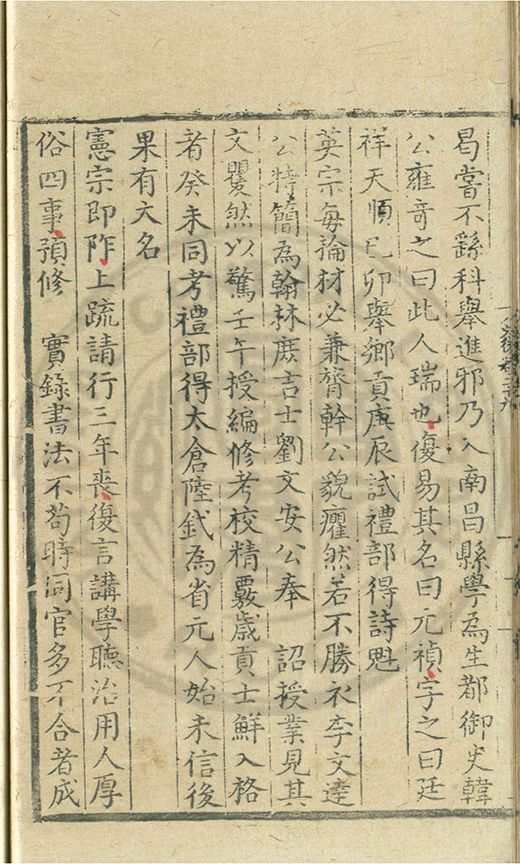 曷嘗不繇科舉進邪乃入南昌縣學為生都御史韓
公雍竒之曰此人瑞也復易其名曰元禎字之曰廷
祥天順己卯舉鄉貢庚辰試禮部得詩魁
英宗毎掄材必兼膂幹公貌癯然若不勝衣李文達
公特簡為翰林庶吉士劉文安公奉　詔授業見其
文矍然以驚壬午授編修考校精覈歲貢士鮮入格
者癸未同考禮部得太倉陸釴為省元人始未信後
果有大名
憲宗即阼上疏請行三年喪復言講學聽治用人厚
俗四事預修　實錄書法不苟時同官多不合者成